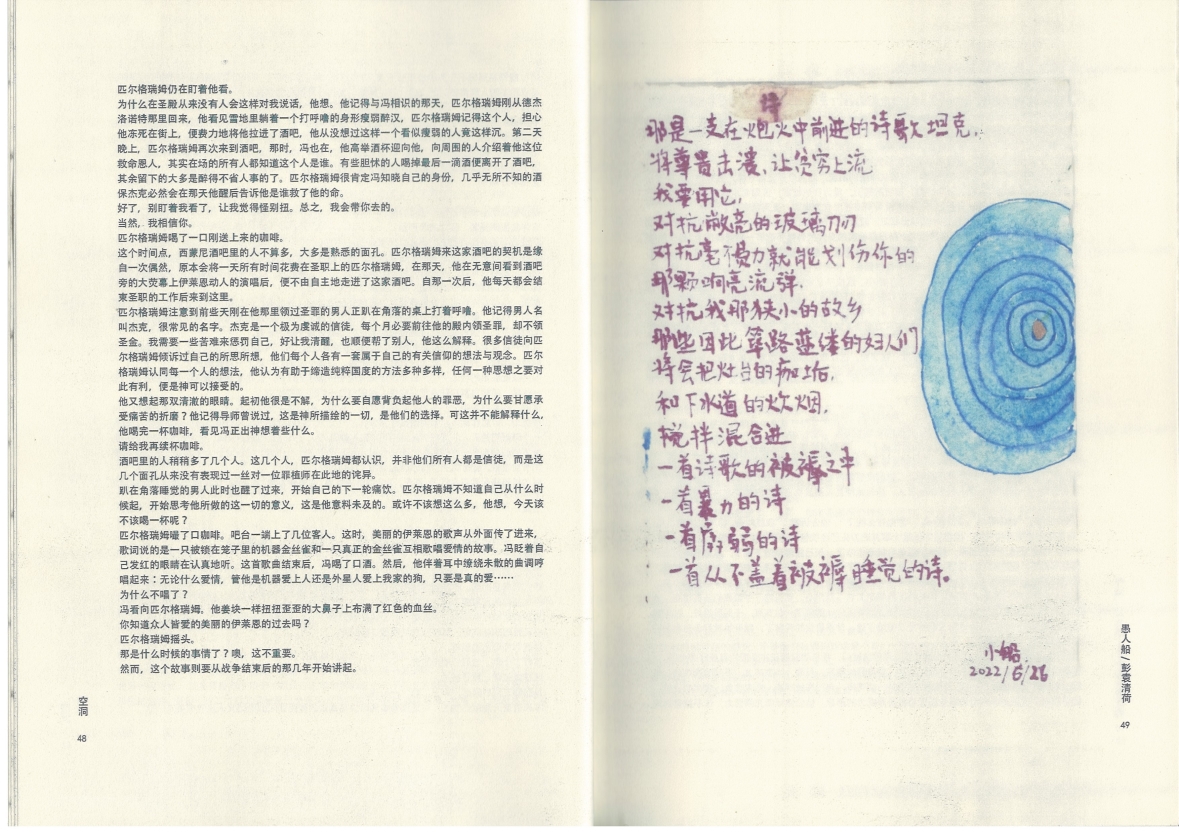 匹尔格瑞姆仍在盯着他看。
为什么在圣殿从来没有人会这样对我说话，他想。他记得与冯相识的那天，匹尔格瑞姆刚从德杰
洛诺特那里回来，他看见雪地里躺着一个打呼噜的身形瘦弱醉汉，匹尔格瑞姆记得这个人，担心
他冻死在街上，便费力地将他拉进了酒吧，他从没想过这样一个看似瘦弱的人竟这样沉。第二天
晚上，匹尔格瑞姆再次来到酒吧，那时，冯也在，他高举酒杯迎向他，向周围的人介绍着他这位
救命恩人，其实在场的所有人都知道这个人是谁。有些胆怵的人喝掉最后一滴酒便离开了酒吧，
其余留下的大多是醉得不省人事的了。匹尔格瑞姆很肯定冯知晓自己的身份，几乎无所不知的酒
保杰克必然会在那天他醒后告诉他是谁救了他的命。
好了，别盯着我看了，让我觉得怪别扭。总之，我会带你去的。
当然，我相信你。
匹尔格瑞姆喝了一口刚送上来的咖啡。
这个时间点，西蒙尼酒吧里的人不算多，大多是熟悉的面孔。匹尔格瑞姆来这家酒吧的契机是缘
自一次偶然，原本会将一天所有时间花费在圣职上的匹尔格瑞姆，在那天，他在无意间看到酒吧
旁的大荧幕上伊莱恩动人的演唱后，便不由自主地走进了这家酒吧。自那一次后，他每天都会结
束圣职的工作后来到这里。
匹尔格瑞姆注意到前些天刚在他那里领过圣罪的男人正趴在角落的桌上打着呼噜。他记得男人名
叫杰克，很常见的名字。杰克是一个极为虔诚的信徒，每个月必要前往他的殿内领圣罪，却不领
圣金。我需要一些苦难来惩罚自己，好让我清醒，也顺便帮了别人，他这么解释。很多信徒向匹
尔格瑞姆倾诉过自己的所思所想，他们每个人各有一套属于自己的有关信仰的想法与观念。匹尔
格瑞姆认同每一个人的想法，他认为有助于缔造纯粹国度的方法多种多样，任何一种思想之要对
此有利，便是神可以接受的。
他又想起那双清澈的眼睛。起初他很是不解，为什么要自愿背负起他人的罪恶，为什么要甘愿承
受痛苦的折磨？他记得导师曾说过，这是神所描绘的一切，是他们的选择。可这并不能解释什么，
他喝完一杯咖啡，看见冯正出神想着些什么。
请给我再续杯咖啡。
酒吧里的人稍稍多了几个人。这几个人，匹尔格瑞姆都认识，并非他们所有人都是信徒，而是这
几个面孔从来没有表现过一丝对一位罪植师在此地的诧异。
趴在角落睡觉的男人此时也醒了过来，开始自己的下一轮痛饮。匹尔格瑞姆不知道自己从什么时
候起，开始思考他所做的这一切的意义，这是他意料未及的。或许不该想这么多，他想，今天该
不该喝一杯呢？
匹尔格瑞姆嘬了口咖啡。吧台一端上了几位客人。这时，美丽的伊莱恩的歌声从外面传了进来，
歌词说的是一只被锁在笼子里的机器金丝雀和一只真正的金丝雀互相歌唱爱情的故事。冯眨着自
己发红的眼睛在认真地听。这首歌曲结束后，冯喝了口酒。然后，他伴着耳中缭绕未散的曲调哼
唱起来：无论什么爱情，管他是机器爱上人还是外星人爱上我家的狗，只要是真的爱……
为什么不唱了？
冯看向匹尔格瑞姆。他姜块一样扭扭歪歪的大鼻子上布满了红色的血丝。
你知道众人皆爱的美丽的伊莱恩的过去吗？
匹尔格瑞姆摇头。
那是什么时候的事情了？噢，这不重要。
然而，这个故事则要从战争结束后的那几年开始讲起。
空洞
48
诗
那是一支在炮火中前进的诗歌坦克，
将尊贵击溃，让贫穷上流
我要用它，
对抗敞亮的玻璃刀刃
对抗毫不费力就能划伤你的
那颗响亮流弹，
对抗我那狭小的故乡
那些因此筚路蓝缕的妇人们
将会把灶台的痂垢，
和下水道的炊烟，
搅拌混合进
一首诗歌的被褥之中
一首暴力的诗
一首孱弱的诗
一首从不盖着被褥睡觉的诗。
小船
2022/6/26
愚人船/彭袁清荷
49